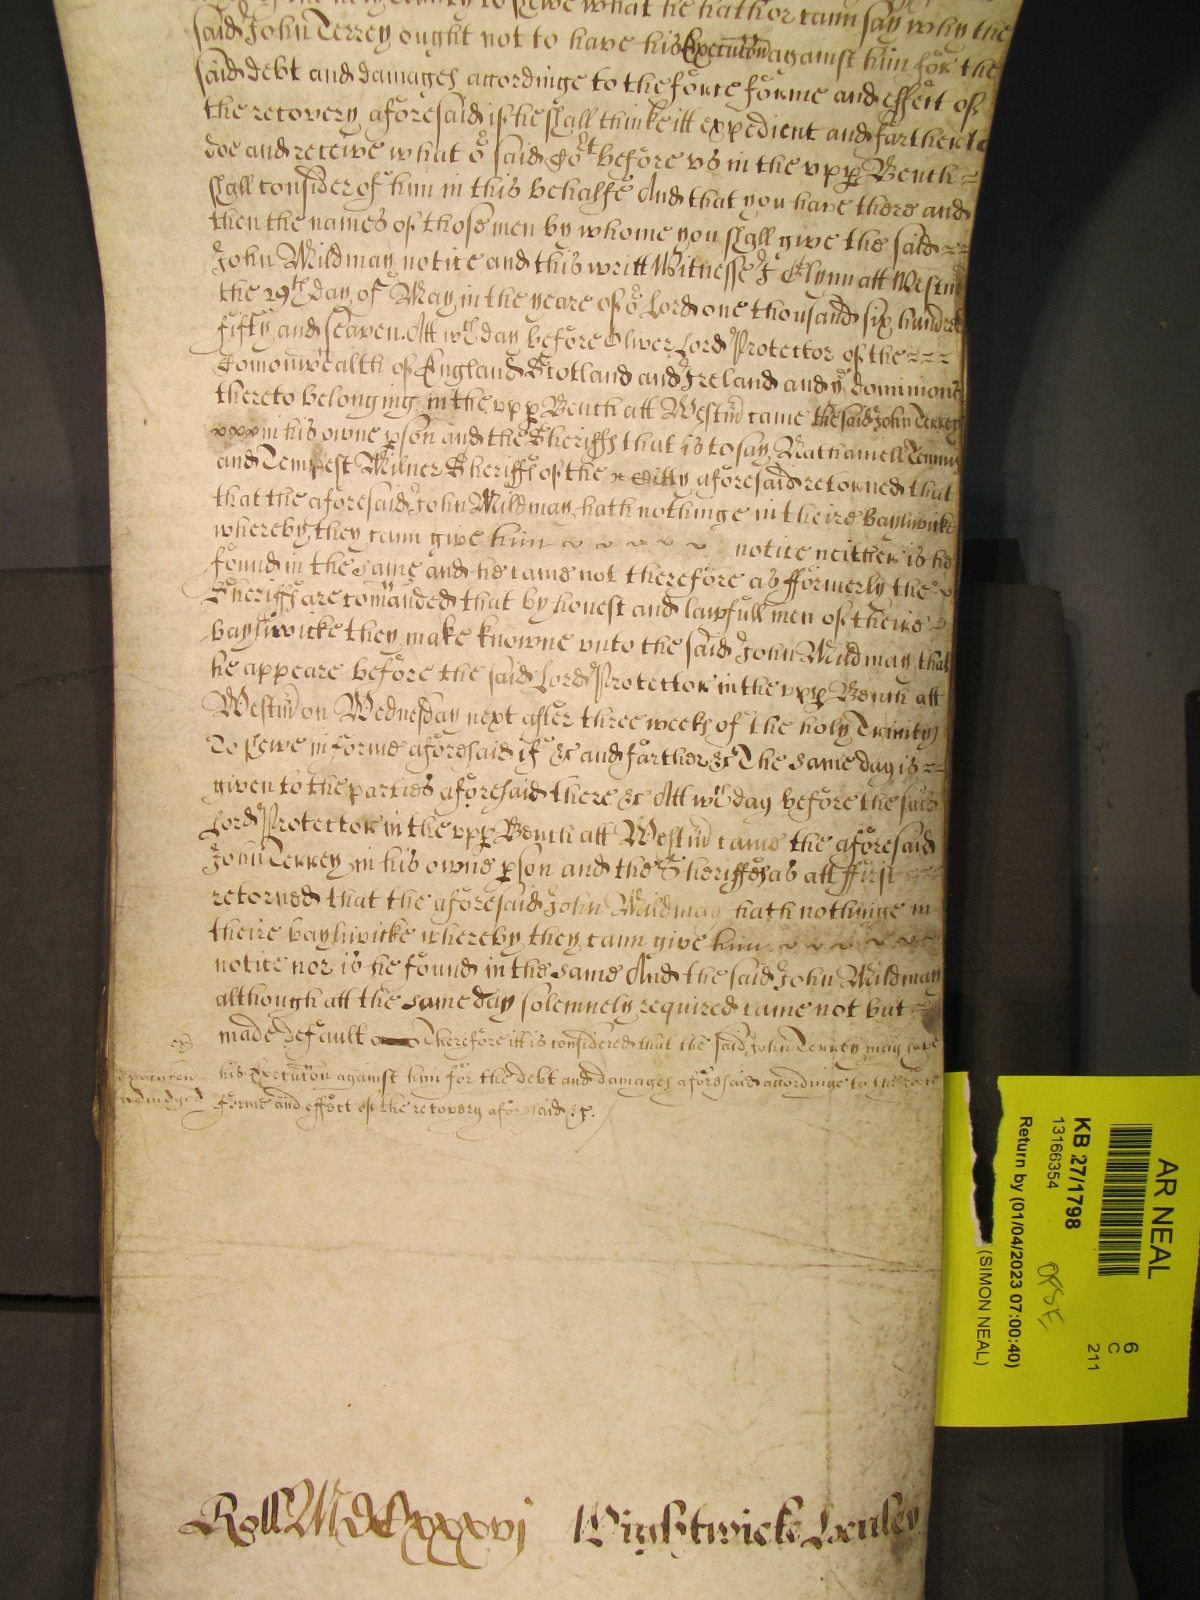 to shewe what he hath or cann say why the
said John Terrey ought not to have his Execucon against him for the
said debt and damages accordinge to the force forme and effect of
the recovery aforesaid if he shall thinke itt expedient and farther to
doe and receive what or said Cort before vs in the vpp Bench
shall consider of him in this behalfe And that you have there and
then the names of those men by whome you shall give the said
John Mildmay notice and this writt Witnesse J Glynn att Westm
the 29th day of May in the yeare of or Lord one thousand six hundred
fifty and seaven. Att wch day before Oliver Lord Protector of the
Comonwealth of England Scotland and Ireland and ye dominions
thereto belonging in the vpp Bench att Westm came the said John Terrey
in his owne pson and the Sheriffs that is to say Nathaniell Temms
and Tempest Milner Sheriffs of the Citty aforesaid retorned that
that the aforesaid John Mildmay hath nothinge in theire bayliwicke
whereby they cann give him notice neither is he
found in the same and he came not therefore as fformerly the
Sheriffs are comanded that by honest and lawfull men of theire
bayliwicke they make knowne vnto the said John Mildmay that
he appeare before the said Lord Protector in the vpp Bench att
Westm on Wednesday next after three weeks of the holy Trinity
To shewe in forme aforesaid if &c and farther &c The same day is
given to the parties aforesaid there &c Att wch day before the said
Lord Protector in the vpp Bench att Westm came the aforesaid
John Terrey in his owne pson and the Sheriffes as att ffirst
retorned that the aforesaid John Mildmay hath nothinge in
theire bayliwicke whereby they cann give him
notice nor is he found in the same And the said John Mildmay
although att the same day solemnely required came not but
made default Therefore itt is considered that the said John Terrey may have
his Execucon against him for the debt and damages aforesaid accordinge to the force
forme and effect of the recovery aforesaid &c.
execucon
adiudged
Roll MdCxxxvj Wightwick Henley
AR NEAL
6
C
211
KB 27/1798
13166354
Return by (01/04/2023 07:00:40)
(SIMON NEAL)